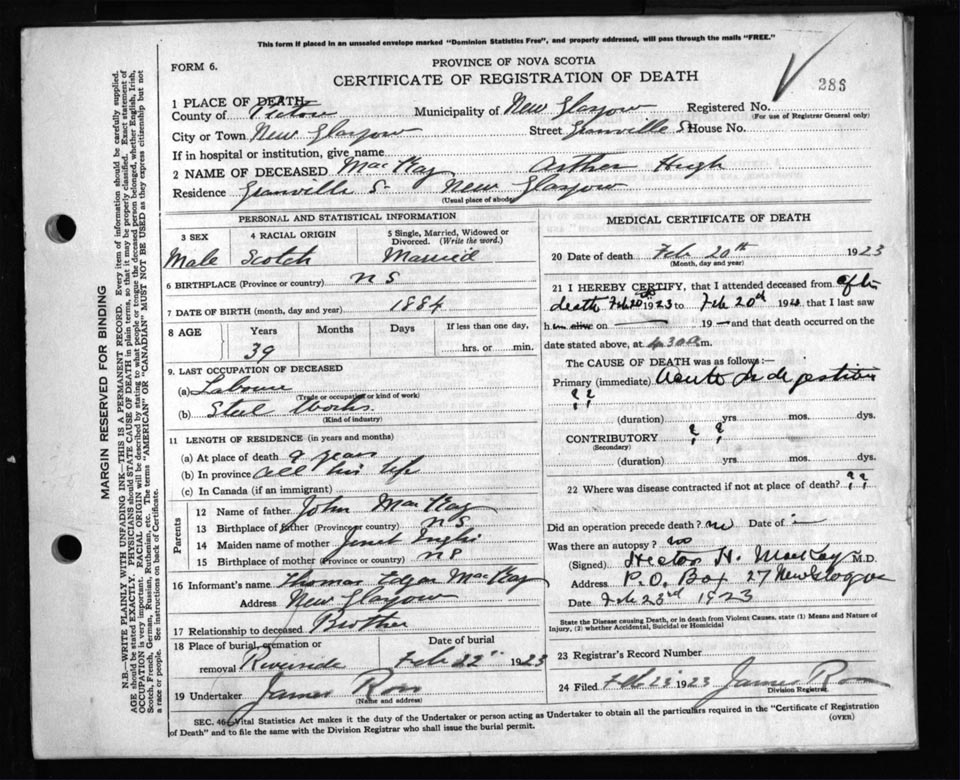 This form if placed in an unsealed envelope marked "Dominion Statistics Free", and properly addressed, will pass through the mails "FREE."
FORM 6.
PROVINCE OF NOVA SCOTIA
CERTIFICATE OF REGISTRATION OF DEATH
286
1 PLACE OF DEATH
County of Pictou Municipality of New Glasgow Registered No.
(For use of Registrar General only)
City or Town New Glasgow Street Granville S House No.
If in hospital or institution, give name
2 NAME OF DECEASED MacKay Arther Hugh
Residence Granville S. New Glasgow
(Usual place of abode)
PERSONAL AND STATISTICAL INFORMATION
3 SEX 4 RACIAL ORIGIN 5 Single, Married, Widowed or Divorced. (Write the word.)
Male Scotch Married
6 BIRTHPLACE (Province or country) NS
7 DATE OF BIRTH (month, day and year) 1884
8 AGE Years Months Days If less than one day,
39 hrs. or min.
9. LAST OCCUPATION OF DECEASED
(a) Laborer
(Trade or occupation or kind of work)
(b) Steel Works
(Kind of industry)
11 LENGTH OF RESIDENCE (in years and months)
(a) At place of death 9 years
(b) In province all his life
(c) In Canada (if an immigrant)
Parents
12 Name of father John MacKay
13 Birthplace of father (Province or country) NS
14 Maiden name of mother Jenet
15 Birthplace of mother (Province or country) NS
16 Informant's name Thomas Edgar MacKay
Address New Glasgow
17 Relationship to deceased Brother
18 Place of burial, cremation or removal Riverside
Date of burial Feb 22" 1923
19 Undertaker James Ross
(Name and address)
MEDICAL CERTIFICATE OF DEATH
20 Date of death Feb 20th 1923
(Month, day and year)
21 I HEREBY CERTIFY, that I attended deceased from after
death Feb 20th 1923 to Feb 20th 192 that I last saw
h alive on — 19 — and that death occurred on the
date stated above, at 4.30 a m.
The CAUSE OF DEATH was as follows:—
Primary (immediate) Acute Indigestion
??
(duration) yrs mos. dys.
CONTRIBUTORY ? ?
(Secondary)
(duration) yrs. mos. dys.
22 Where was disease contracted if not at place of death? ??
Did an operation precede death? no Date of —
Was there an autopsy? no
(Signed) Hector H. MacKay M.D.
Address P.O. Box 27 New Glasgow
Date Feb 23rd 1923
State the Disease causing Death, or in death from Violent Causes, state (1) Means and Nature of
Injury, (2) whether Accidental, Suicidal or Homicidal
23 Registrar's Record Number
24 Filed Feb 23 1923 James Ross
Division Registrar
SEC. 46—Vital Statistics Act makes it the duty of the Undertaker or person acting as Undertaker to obtain all the particulars required in the "Certificate of Registration
of Death" and to file the same with the Division Registrar who shall issue the burial permit.
(OVER)
MARGIN RESERVED FOR BINDING
N.B.—WRITE PLAINLY WITH UNFADING INK—THIS IS A PERMANENT RECORD. Every item of information should be carefully supplied.
AGE should be stated EXACTLY. PHYSICIANS should STATE CAUSE OF DEATH in plain terms, so that it may be properly classified. Exact statement of
OCCUPATION is very important. RACIAL ORIGIN will be described by stating to what people or tongue the deceased person belonged, whether English, Irish,
Scotch, French, German, Russian, Ruthenian, etc. The terms "AMERICAN" OR "CANADIAN" MUST NOT BE USED as they express citizenship but not
a race or people. See instructions on back of Certificate.